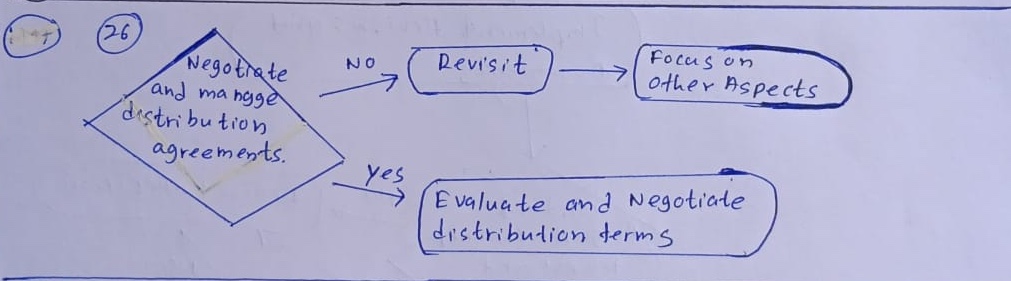 26
Negotiate
and mangge
distribution
agreements.
NO
Revisit
Focus on
Other Aspects
yes
Evaluate and Negotiate
distribution terms